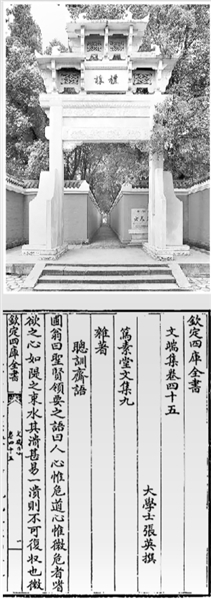 禮讓
欽定四庫全書
文端集卷四十五
大學士張英撰
篤素堂文集九
雜著
聰訓齋語
圃翁曰聖賢領要之語曰人心惟危道心惟微危者嗜
欲之心如隄之束水其潰甚易一潰則不可復收也微
欽定四庫全書
文端集
卷四十五
一